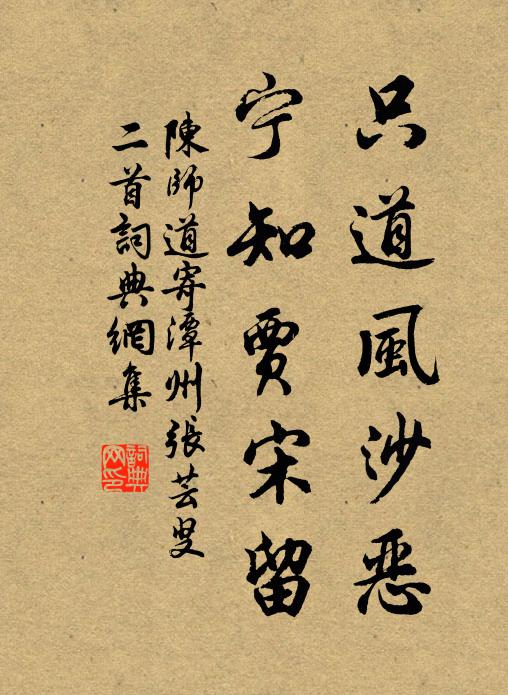 只道風沙恶
宁知賈宋留
陳師道寄潭州張芸叟
二首詞典網集
詞典网印